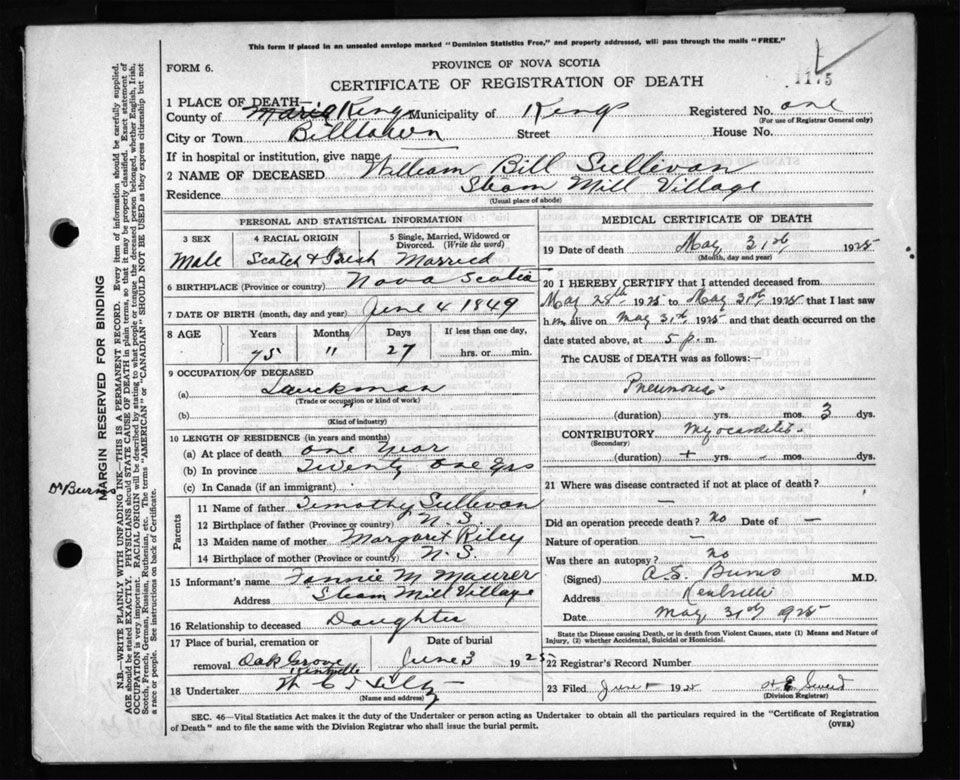 This form if placed in an unsealed envelope marked "Dominion Statistics Free," and properly addressed, will pass through the mails "FREE."
FORM 6.
PROVINCE OF NOVA SCOTIA
CERTIFICATE OF REGISTRATION OF DEATH
1175
1 PLACE OF DEATH—
County of Kings Municipality of Kings Registered No. one
(For use of Registrar General only)
City or Town Billtown Street House No.
If in hospital or institution, give name
2 NAME OF DECEASED William Bill Sullivan
Residence Steam Mill Village
(Usual place of abode)
PERSONAL AND STATISTICAL INFORMATION
3 SEX 4 RACIAL ORIGIN 5 Single, Married, Widowed or Divorced. (Write the word)
Male Scotch & Irish Married
6 BIRTHPLACE (Province or country) Nova Scotia
7 DATE OF BIRTH (month, day and year) June 4 1849
8 AGE Years Months Days If less than one day,
75 11 27 hrs. or min.
9 OCCUPATION OF DECEASED
(a)
(Trade or occupation or kind of work)
(b)
(Kind of industry)
10 LENGTH OF RESIDENCE (in years and months)
(a) At place of death one year
(b) In province Twenty one yrs
(c) In Canada (if an immigrant)
Parents
11 Name of father Timothy Sullivan
12 Birthplace of father (Province or country) N.S.
13 Maiden name of mother Margaret Riley
14 Birthplace of mother (Province or country) N.S.
15 Informant's name Fannie M Maurer
Address Steam Mill Village
16 Relationship to deceased Daughter
17 Place of burial, cremation or Date of burial
removal Oak Grove Kentville June 3 1925
18 Undertaker
(Name and address)
MEDICAL CERTIFICATE OF DEATH
19 Date of death May 31st 1925
(Month, day and year)
20 I HEREBY CERTIFY that I attended deceased from
May 28th 1925 to May 31st 1925 that I last saw
him alive on May 31st 1925 and that death occurred on the
date stated above, at 5 p. m.
The CAUSE OF DEATH was as follows:
Pneumonia
(duration) yrs. mos. 3 dys.
CONTRIBUTORY Myocarditis
(Secondary)
(duration) + yrs. - mos. dys.
21 Where was disease contracted if not at place of death?
—
Did an operation precede death? No Date of —
Nature of operation —
Was there an autopsy? No
(Signed) A.S. Burns M.D.
Address Kentville
Date May 31st 1925
State the Disease causing Death, or in death from Violent Causes, state (1) Means and Nature of
Injury, (2) whether Accidental, Suicidal or Homicidal.
22 Registrar's Record Number
23 Filed June 1925
(Division Registrar)
SEC. 46—Vital Statistics Act makes it the duty of the Undertaker or person acting as Undertaker to obtain all the particulars required in the "Certificate of Registration
of Death" and to file the same with the Division Registrar who shall issue the burial permit.
(OVER)
MARGIN RESERVED FOR BINDING
Dr Burns
N.B.—WRITE PLAINLY WITH UNFADING INK—THIS IS A PERMANENT RECORD. Every item of information should be carefully supplied.
AGE should be stated EXACTLY. PHYSICIANS should STATE CAUSE OF DEATH in plain terms, so that it may be properly classified. Exact statement of
OCCUPATION is very important. RACIAL ORIGIN will be described by stating to what people or tongue the deceased person belonged, whether English, Irish,
Scotch, French, German, Russian, Ruthenian, etc. The terms "AMERICAN" or "CANADIAN" SHOULD NOT BE USED as they express citizenship but not
a race or people. See instructions on back of Certificate.